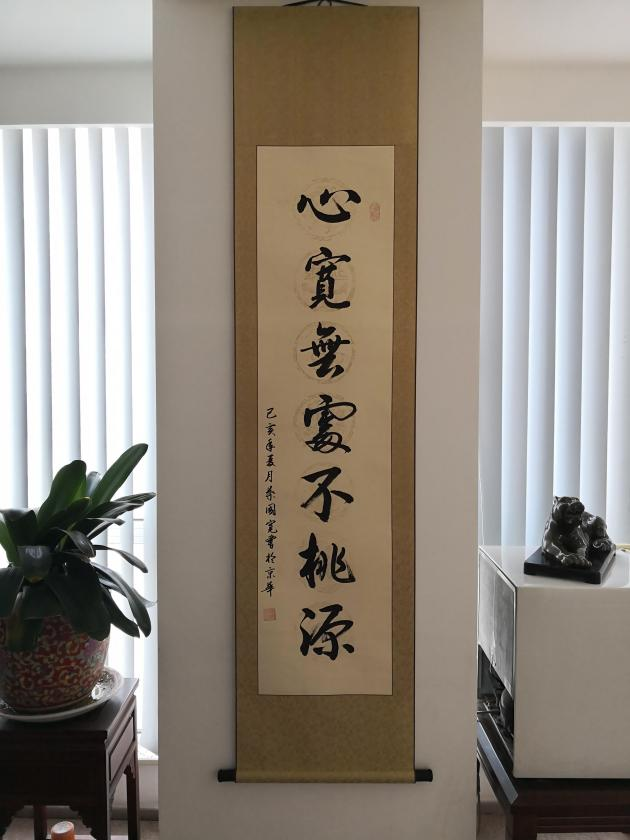 心寬無處不桃源
己亥年夏月蔡國寬書於京華